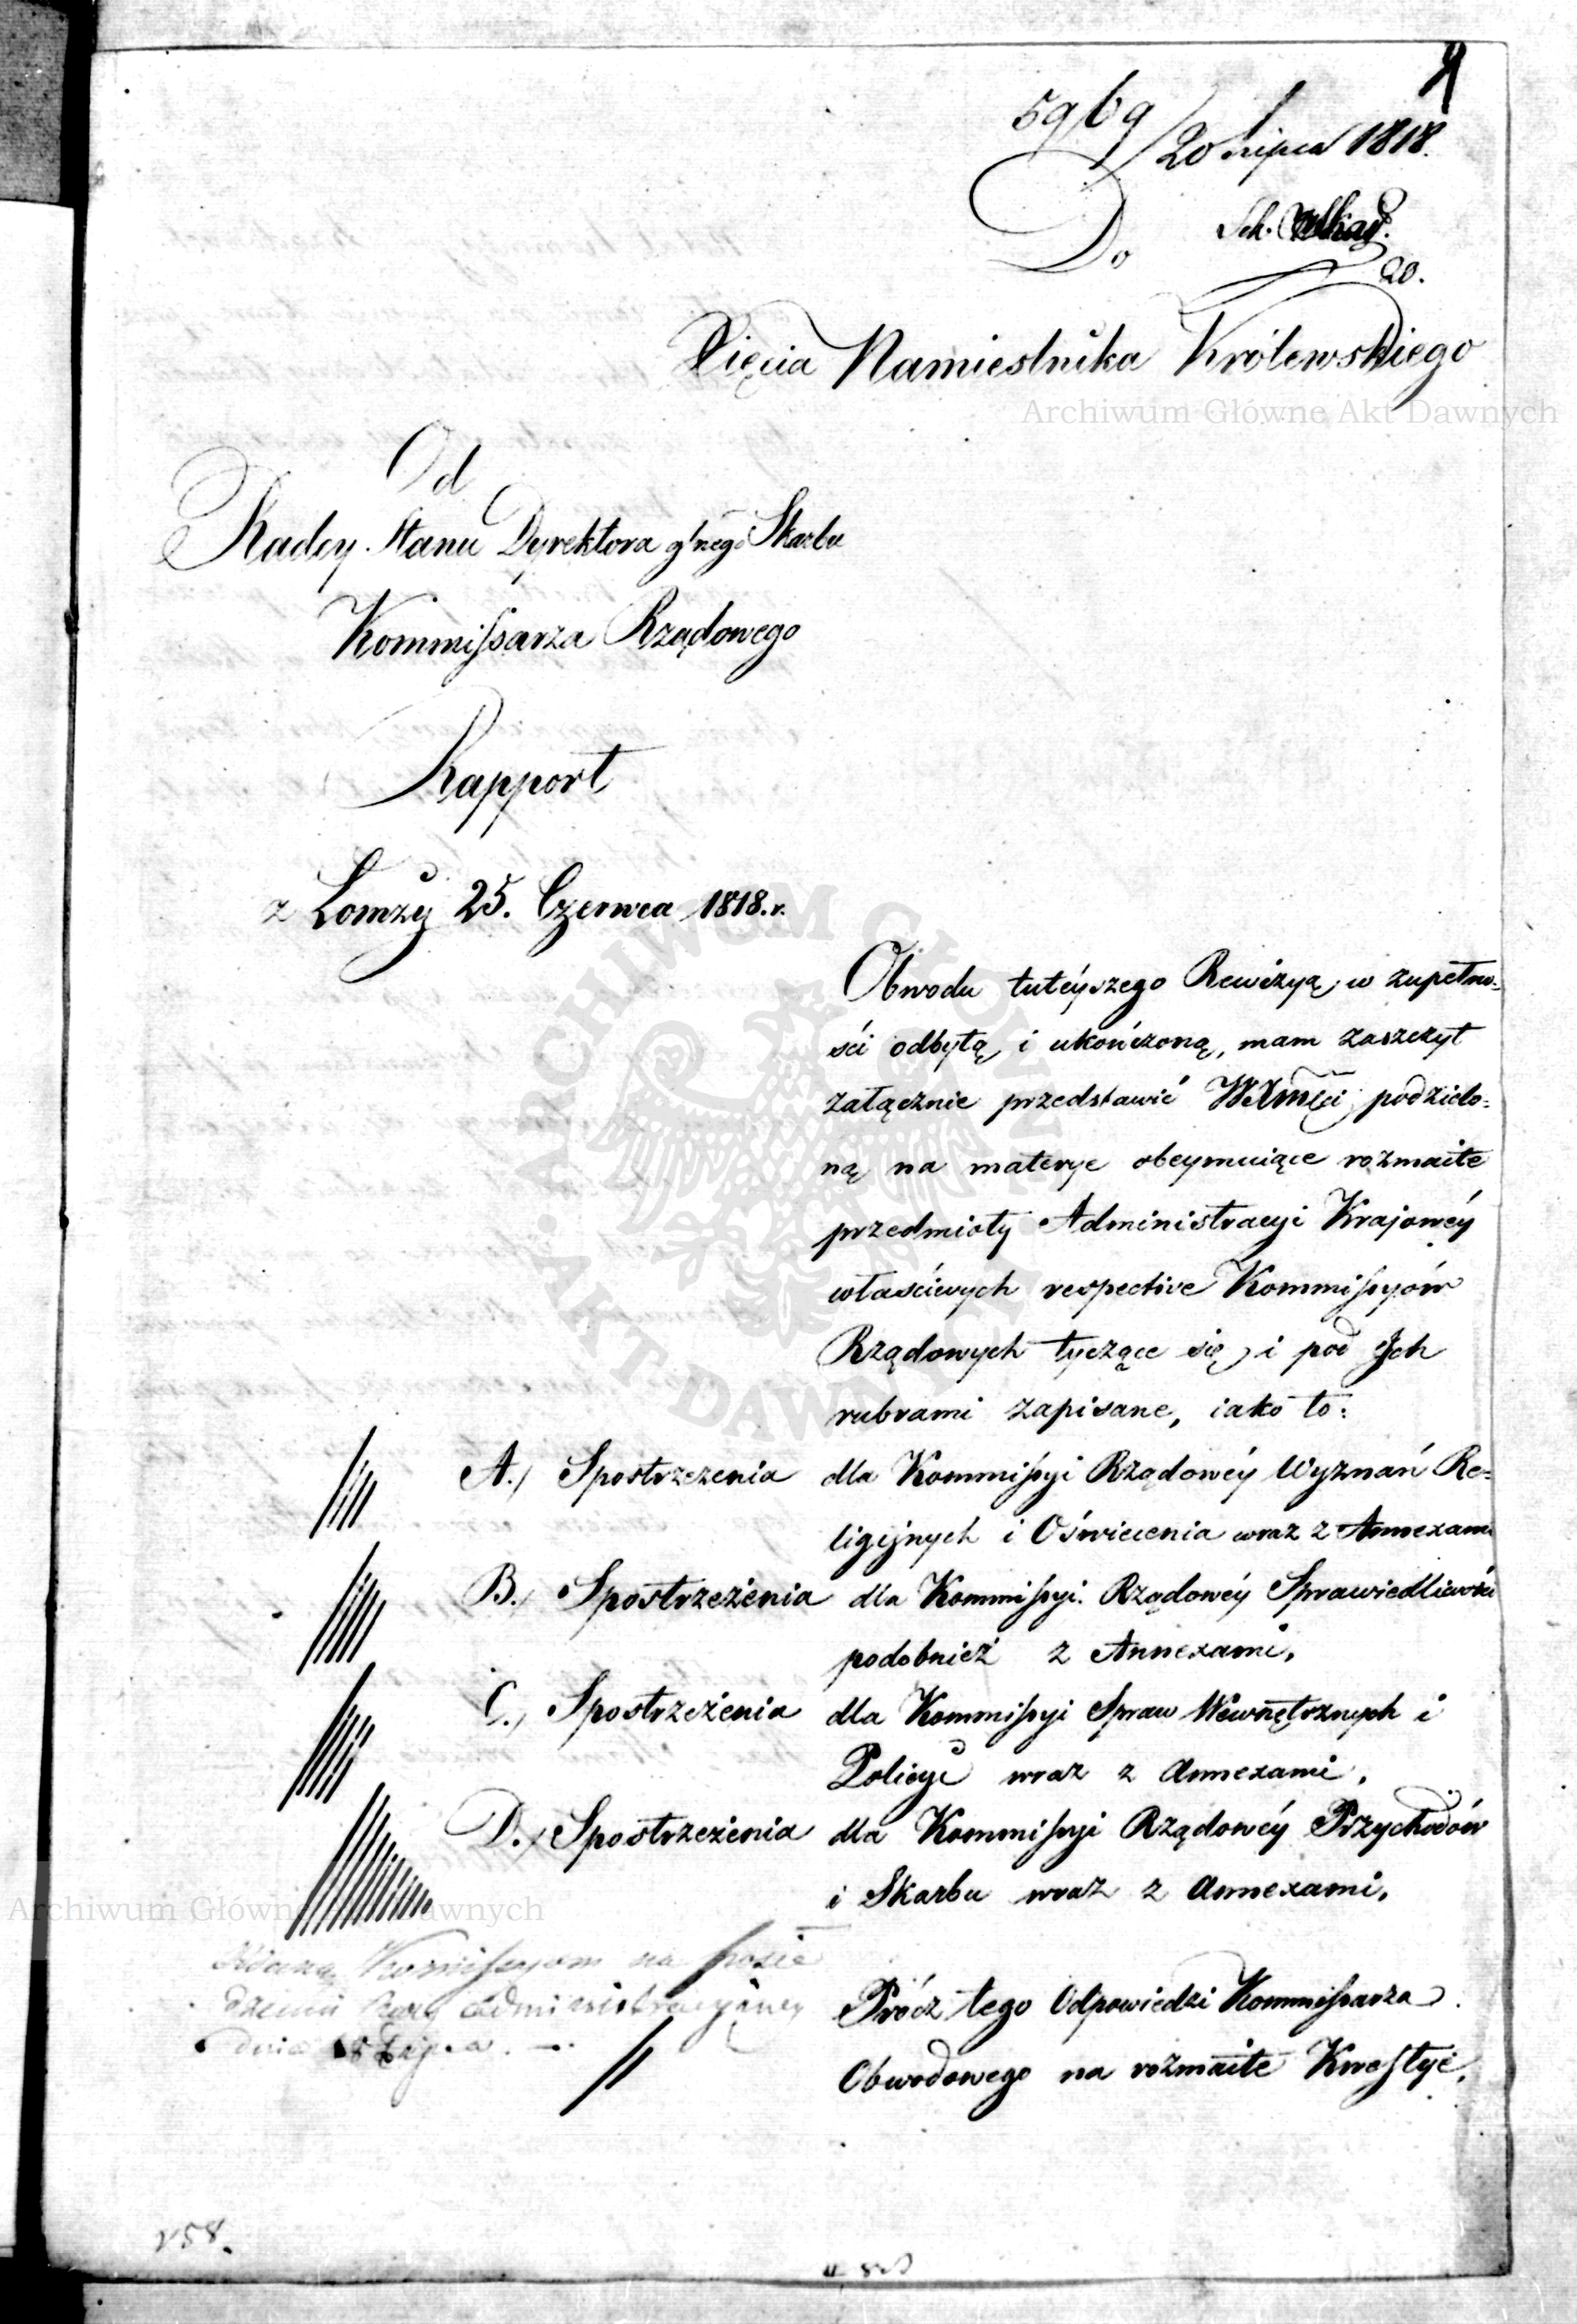 5969/20 Lipca 1818.
Do
20.
Xięcia Namiestnika Królewskiego
Archiwum Główne Akt Dawnych
Od
Radcy Stanu Dyrektora głnego Skarbu
Kommissarza Rządowego
Rapport
z Łomży 25. Czerwca 1818.r.
Obwodu tutéyszego Rewizyą, w zupełno=
ści odbytą, i ukończoną, mam zaszczyt
załącznie przedstawić WXMści podzielo=
ną na materye obeymuiące rozmaite
przedmioty Administracyi Krajowéy
właściwych respective Kommissyów
Rządowych tyczące się, i pod Ich
rubrami zapisane, iako to:
A./ Spostrzeżenia dla Kommissyi Rządowéy Wyznań Re=
ligijnych i Oświecenia wraz z Annexami
B./ Spostrzeżenia dla Kommissyi Rządowéy Sprawiedliwości
podobnież z Annexami.
C./ Spostrzeżenia dla Kommissyi Spraw Wewnętrznych i
Policyi wraz z Annexami.
D./ Spostrzeżenia dla Kommissyi Rządowéy Przychodów
i Skarbu wraz z Annexami.
Archiwum Główne Akt Dawnych
Kommissyom na posie
dzeniu Rady Administracyjney
dnia 18 Lipca.
Prócz tego Odpowiedzi Kommissarza
Obwodowego na rozmaite Kwestye.
ARCHIWUM GŁÓWNE AKT DAWNYCH